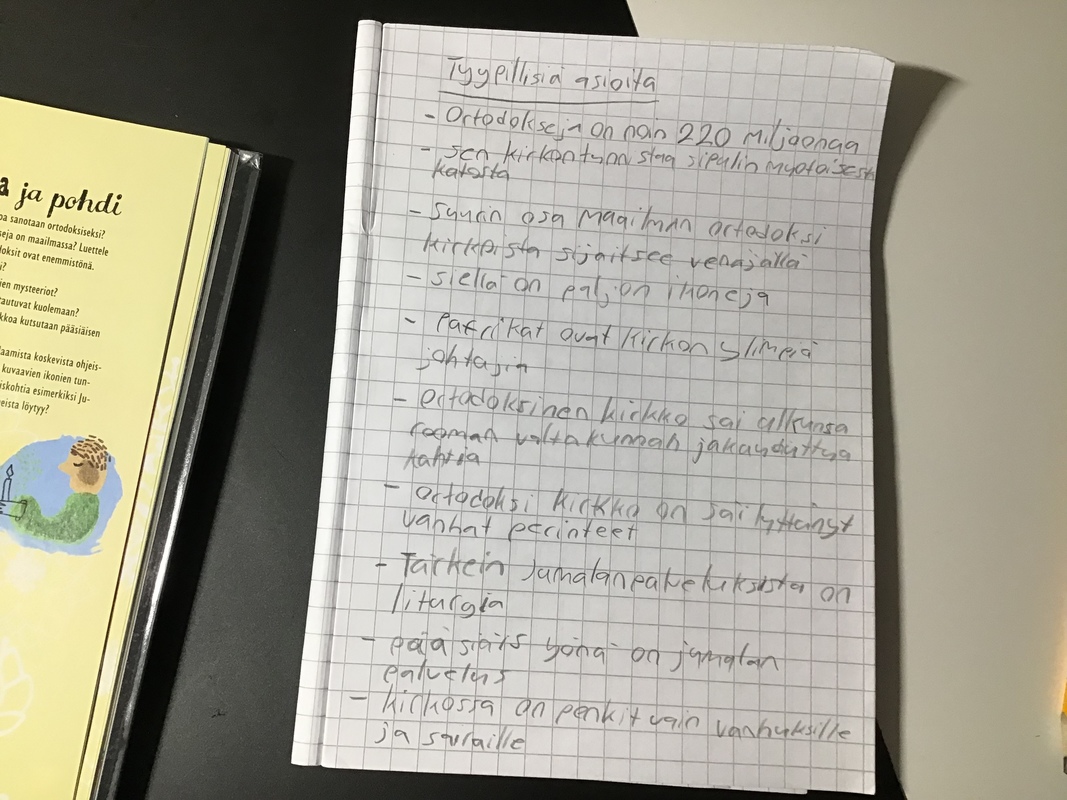 a ja pohdi
pa sanotaan ortodoksiseksi?
seja on maailmassa? Luettele
doksit ovat enemmistönä.
i?
ien mysteeriot?
autuvat kuolemaan?
kkoa kutsutaan pääsiäisen
laamista koskevista ohjeis-
kuvaavien ikonien tun-
iskohtia esimerkiksi Ju-
eista löytyy?
Tyypillisiä asioita
- Ortodokseja on noin 220 miljoonaa
- sen kirkon tunnistaa sipulin myötäisestä
katosta
- Suurin osa maailman ortodoksi
kirkoista sijaitsee venäjällä
- siellä on paljon ikoneja
- Patrikat ovat kirkon ylimpiä
johtajia
- ortodoksinen kirkko sai alkunsa
rooman valtakunnan jakauduttya
kahtia
- ortodoksi kirkko on säilyttänyt
vanhat perinteet
- Tärkein jumalanpalveluksista on
liturgia
- pääsiäis yönä on jumalan
palvelus
- kirkossa on penkit vain vanhuksille
ja sairaille